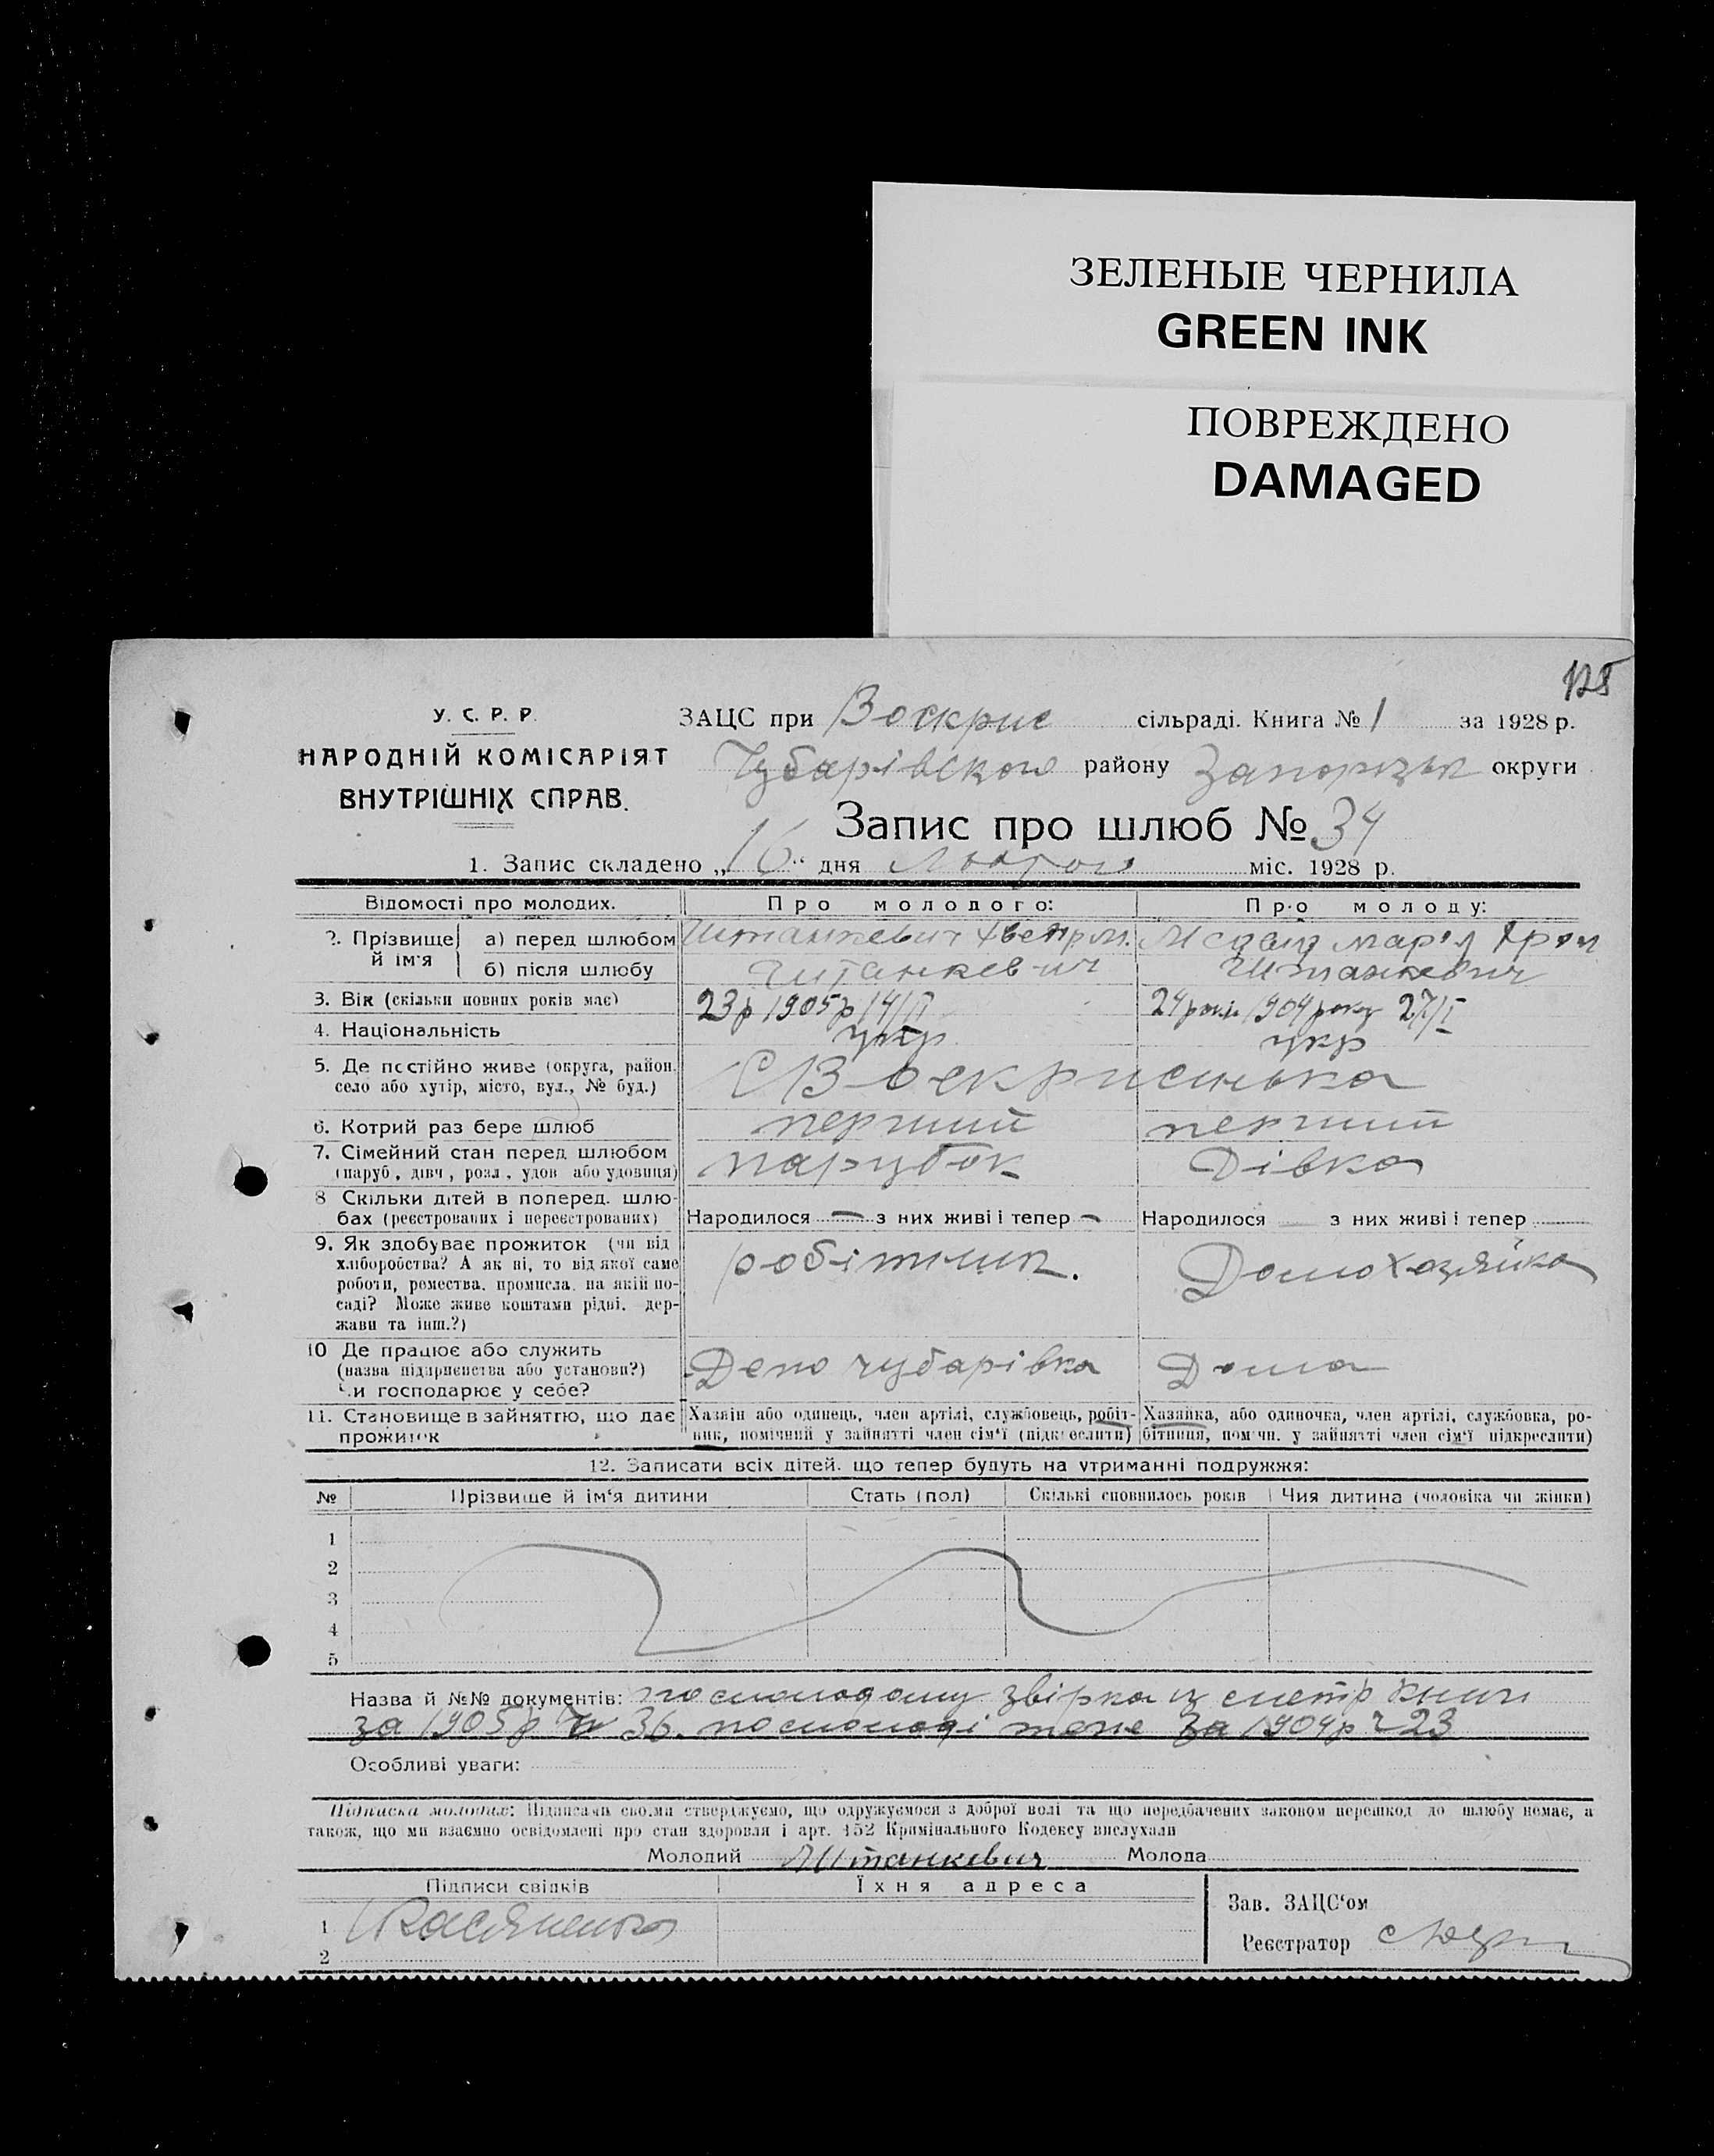 ЗЕЛЕНЫЕ ЧЕРНИЛА
GREEN INK
ПОВРЕЖДЕНО
DAMAGED
128
У. С. Р. Р.
НАРОДНІЙ КОМІСАРІЯТ
ВНУТРІШНІХ СПРАВ.
ЗАЦС при Воскрис сільраді. Книга № 1 за 1928 р.
Чубарівского району Запорізьк округи
Запис про шлюб № 34
1. Запис складено „16“ дня Лютого міс. 1928 р.
Відомості про молодих. Про молодого: Про молоду:
2. Прізвище й ім'я
а) перед шлюбом Штанкевич
б) після шлюбу Штанкевич Штанкевич
3. Вік (скільки повних років має) 23 р 1905 р 14/II 24 років 1904 року 27/I
4. Національність укр укр
5. Де постійно живе (округа, район,
село або хутір, місто, вул., № буд.) С Воскрисинька
6. Котрий раз бере шлюб перший перший
7. Сімейний стан перед шлюбом
(паруб., дівч., розл., удов. або удовиця) парубок Дівка
8 Скільки дітей в поперед. шлю-
бах (реєстрованих і нереєстрованих) Народилося — з них живі і тепер — Народилося — з них живі і тепер
9. Як здобуває прожиток (чи від
хліборобства? А як ні, то від якої саме
роботи, ремества, промисла, на якій по-
саді? Може живе коштами рідні, дер-
жави та інш.?)
робітник. Домохозяйка
10 Де працює або служить
(назва підприємства або установи?)
Чи господарює у себе?
Депо чубарівка Дома
11. Становище в зайняттю, що дає
прожиток
Хазяїн або одинець, член артілі, службовець, робіт-
ник, помічний у зайнятті член сім‘ї (підкреслити)
Хазяйка, або одиночка, член артілі, службовка, ро-
бітниця, помічн. у зайнятті член сім‘ї підкреслити)
12. Записати всіх дітей, що тепер будуть на утриманні подружжя:
№ Прізвище й ім‘я дитини Стать (пол) Скількі сповнилось років Чия дитина (чоловіка чи жінки)
1
2
3
4
5
Назва й №№ документів: посмолодому звірка из метр книги
за 1905 р 36. посмолоді теж за 1904 р ч 23
Особливі уваги:
Підписка молодих: Підписами своїми стверджуємо, що одружуємося з доброї волі та що передбачених законом перешкод до шлюбу немає, а
також, що ми взаємно освідомлені про стан здоровля і арт. 152 Кримінального Кодексу вислухали
Молодий Штанкевич Молода
Підписи свідків Їхня адреса
1 Касяненко
2
Зав. ЗАЦС‘ом
Реєстратор